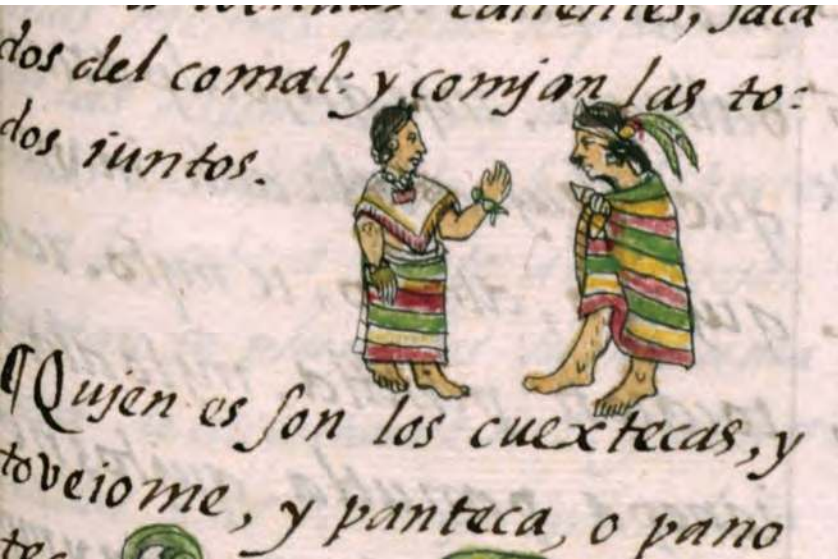 calientes, saca
dos del comal: y comjan las to:
dos iuntos.
¶ Qujen es son los cuextecas, y
toveiome, y panteca, o pano
tec